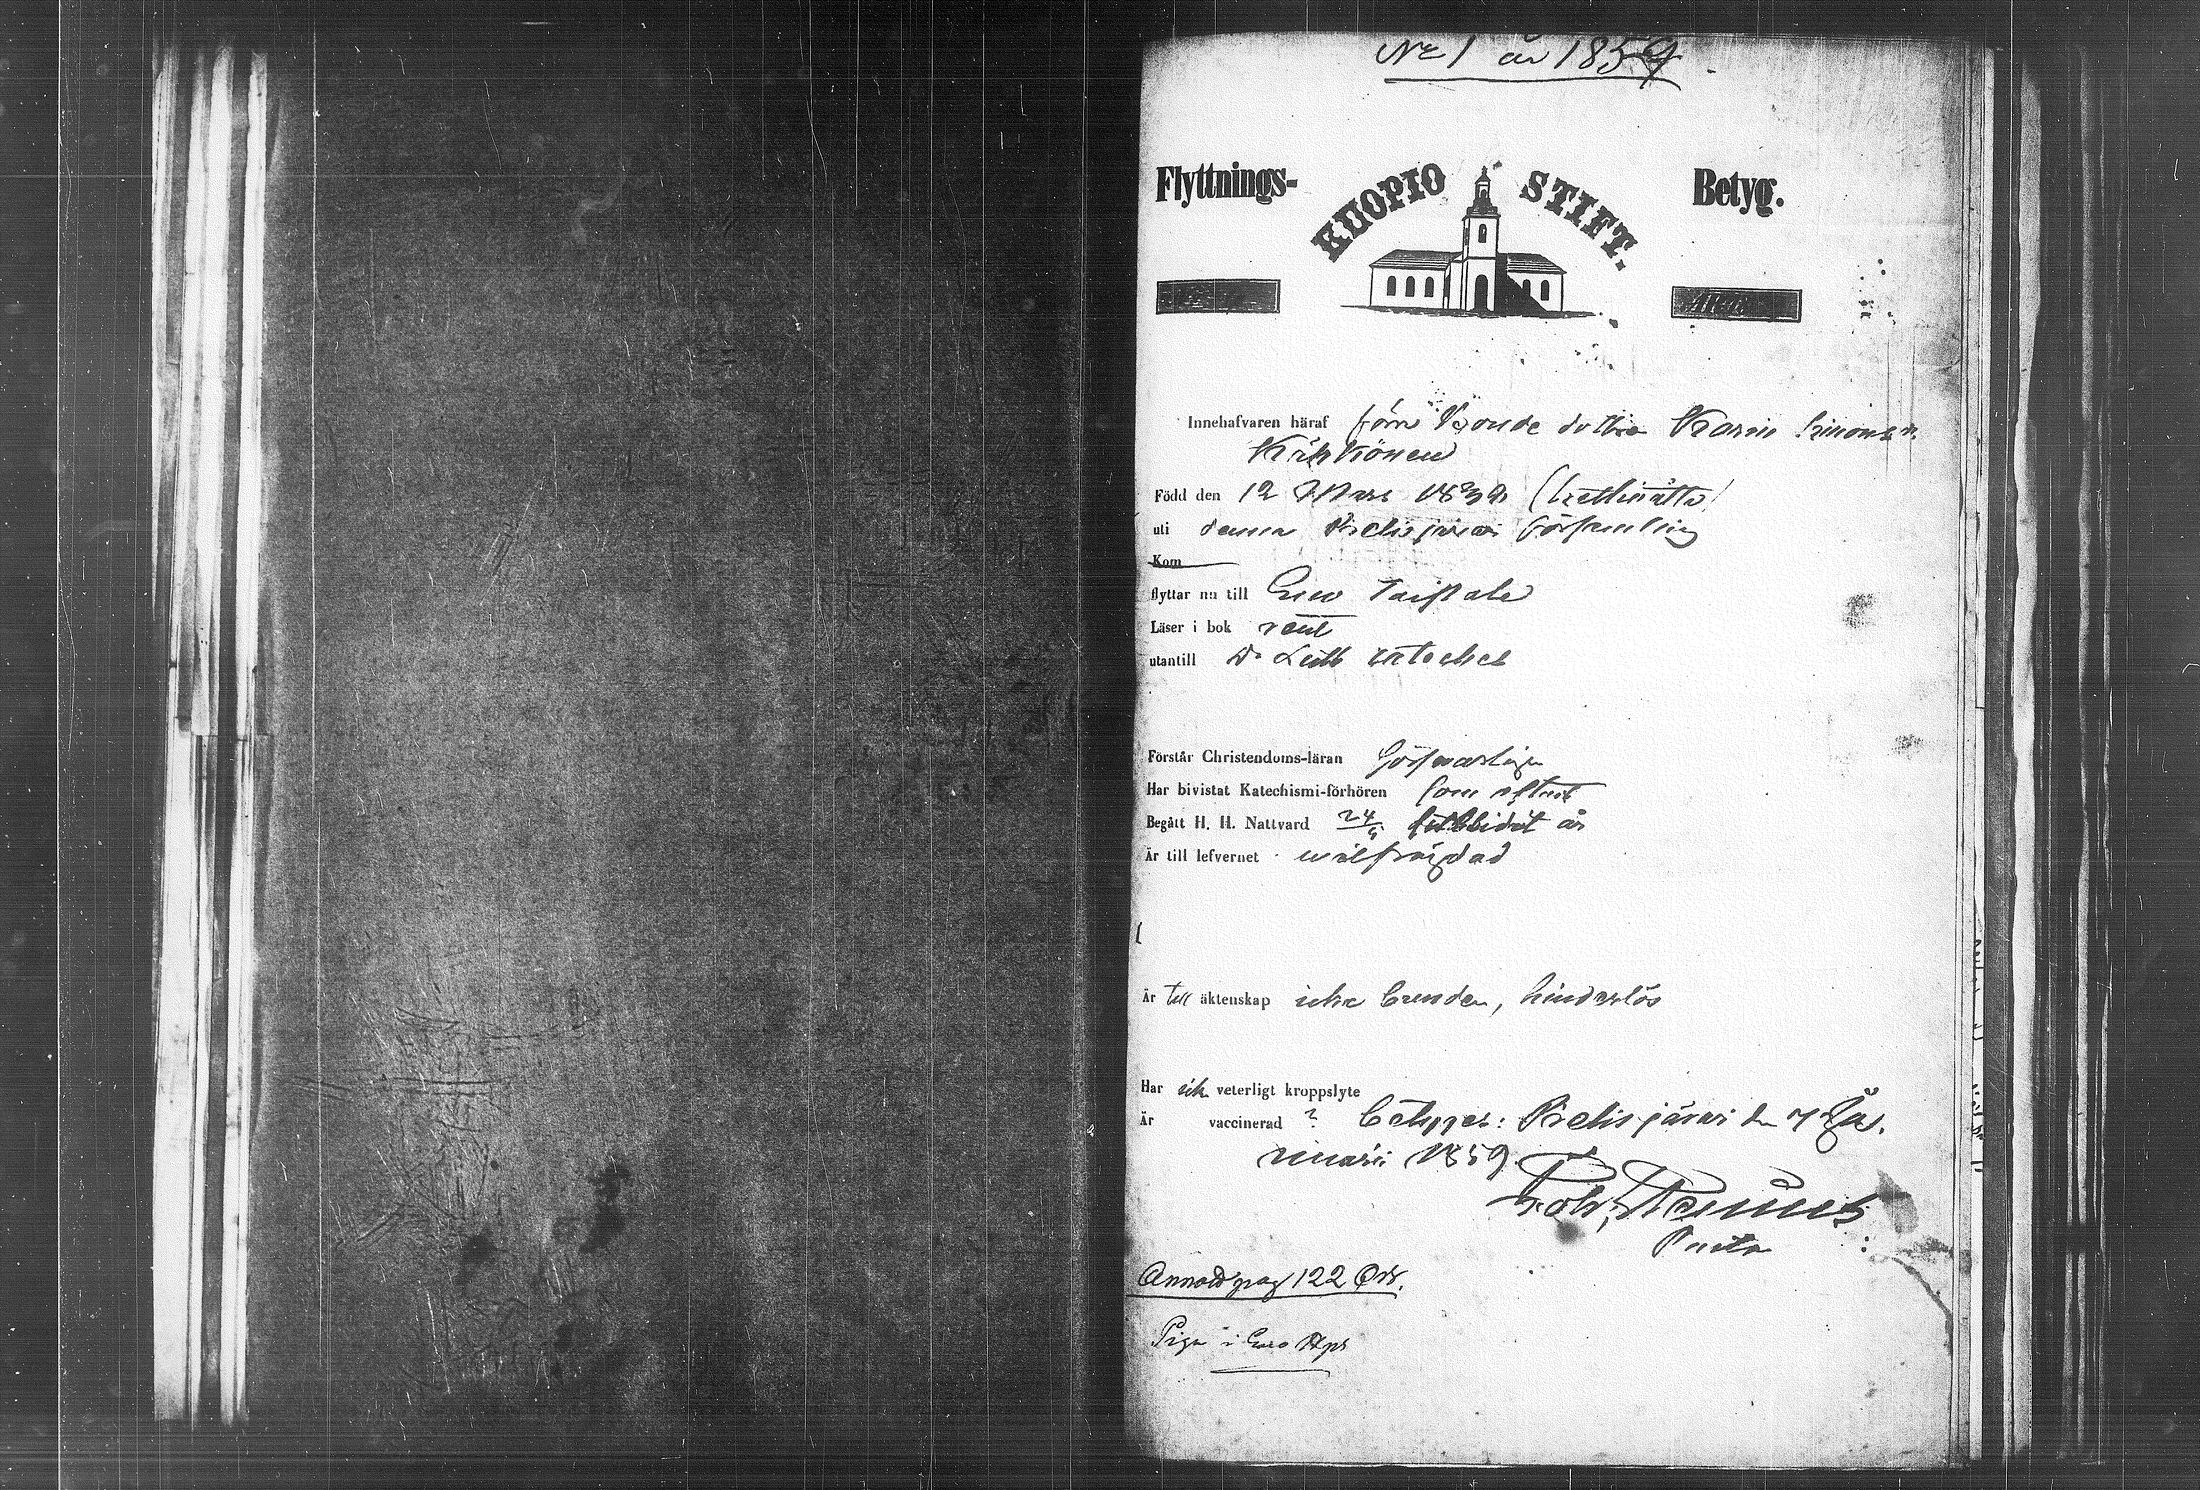 No 1 år 1859.
Flyttnings- KUOPIO STIFT. Betyg.
Innehafvaren häraf förra Bonde dottren Karin Simonsd.
Född den 12 Mars 1838 (trettioåtta)
uti denna Pielisjärvi församling
Kom
flyttar nu till Eno
Läser i bok rent
utantill Do Luth cateches
Förstår Christendoms-läran försvarligen
Har bivistat Katechismi-förhören som oftast
Begått H. H. Nattvard 24/ år
Är till lefvernet wälfräjdad
Är till äktenskap icke bunden, hinderlös
Har ick veterligt kroppslyte
Är vaccinerad ? betygas: Pielisjärvi den 7 Ja-
nuarii 1859.
Pasto
pag 122
Piga i Eno